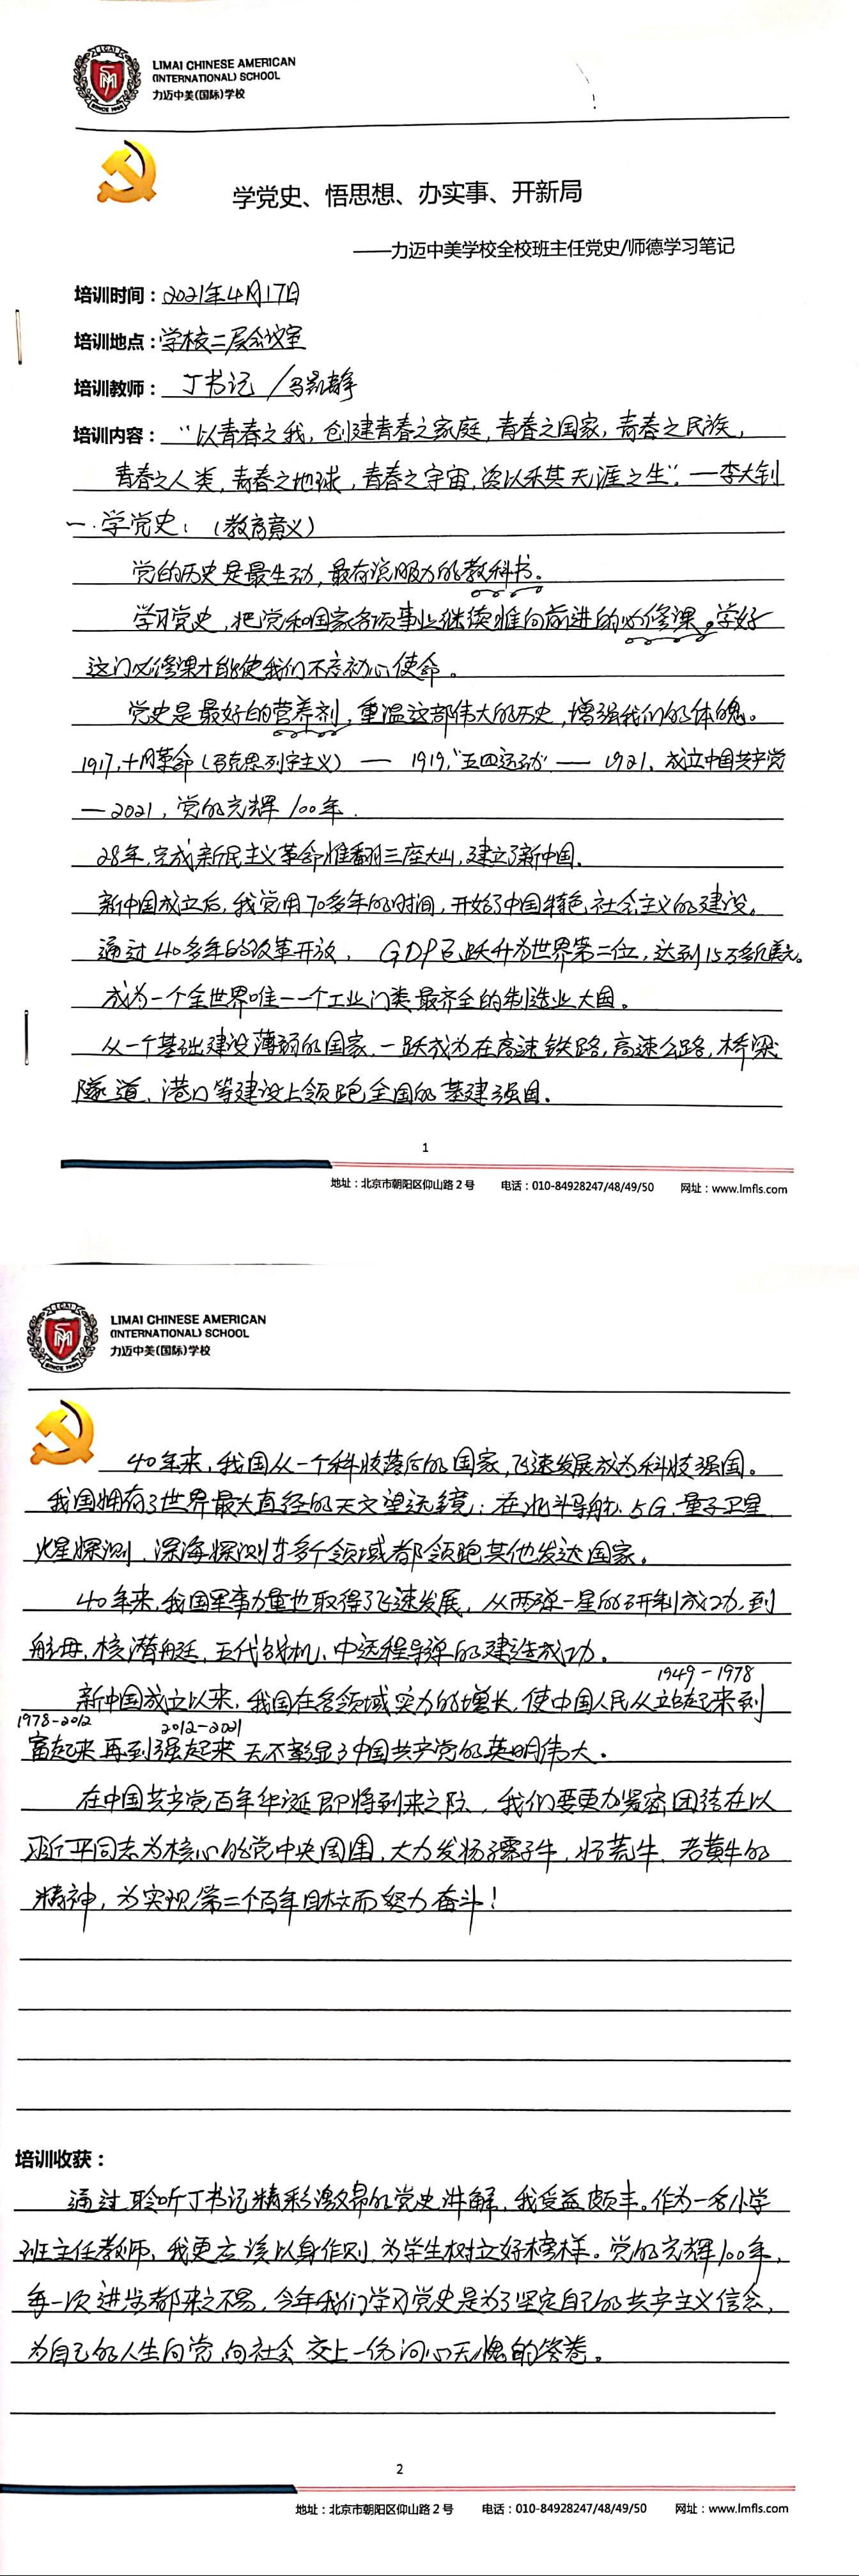 LIMAI CHINESE AMERICAN
(INTERNATIONAL) SCHOOL
力迈中美(国际)学校
学党史、悟思想、办实事、开新局
——力迈中美学校全校班主任党史/师德学习笔记
培训时间：2021年4月17日
培训地点：学校二层会议室
培训教师：丁书记／马凯静
培训内容："以青春之我，创建青春之家庭，青春之国家，青春之民族，
青春之人类，青春之地球，青春之宇宙，资以乐其无涯之生"。—李大钊
一.学党史：（教育意义）
党的历史是最生动，最有说服力的教科书。
学习党史，把党和国家各项事业继续推向前进的必修课。学好
这门必修课才能使我们不忘初心使命。
党史是最好的营养剂，重温这部伟大的历史，增强我们的体魄。
1917,十月革命（马克思列宁主义）— 1919,"五四运动" — 1921、成立中国共产党
—2021，党的光辉100年.
28年，完成新民主义革命推翻三座大山，建立了新中国.
新中国成立后，我党用70多年的时间，开始了中国特色社会主义的建设。
通过40多年的改革开放， GDP已跃升为世界第二位，达到15万多亿美元。
成为一个全世界唯一一个工业门类最齐全的制造业大国。
从一个基础建设薄弱的国家，一跃成为在高速铁路，高速公路，桥梁
隧道、港口等建设上领跑全国的基建强国。
1
地址：北京市朝阳区仰山路2号 电话：010-84928247/48/49/50 网址：www.lmfls.com
LIMAI CHINESE AMERICAN
(INTERNATIONAL) SCHOOL
力迈中美(国际)学校
40年来，我国从一个科技落后的国家，飞速发展成为科技强国。
我国拥有了世界最大直径的天文望远镜；在北斗导航、5G、量子卫星
火星探测、深海探测等多个领域都领跑其他发达国家。
40年来，我国军事力量也取得了飞速发展，从两弹一星的研制成功，到
航母，核潜艇，五代战机、中远程导弹的建造成功。
1949-1978
新中国成立以来，我国在各领域实力的增长，使中国人民从立起来到
1978-2012 2012-2021
富起来再到强起来无不彰显了中国共产党的英明伟大。
在中国共产党百年华诞即将到来之际，我们要更加紧密团结在以
习近平同志为核心的党中央周围，大力发扬孺子牛，拓荒牛、老黄牛的
精神，为实现第二个百年目标而努力奋斗！
培训收获：
通过聆听丁书记精彩激昂的党史讲解，我受益颇丰。作为一名小学
班主任教师，我更应该以身作则，为学生树立好榜样。党的光辉100年，
每一次进步都来之不易，今年我们学习党史是为了坚定自己的共产主义信念，
为自己的人生向党，向社会交上一份问心无愧的答卷。
2
地址：北京市朝阳区仰山路2号 电话：010-84928247/48/49/50 网址：www.lmfls.com